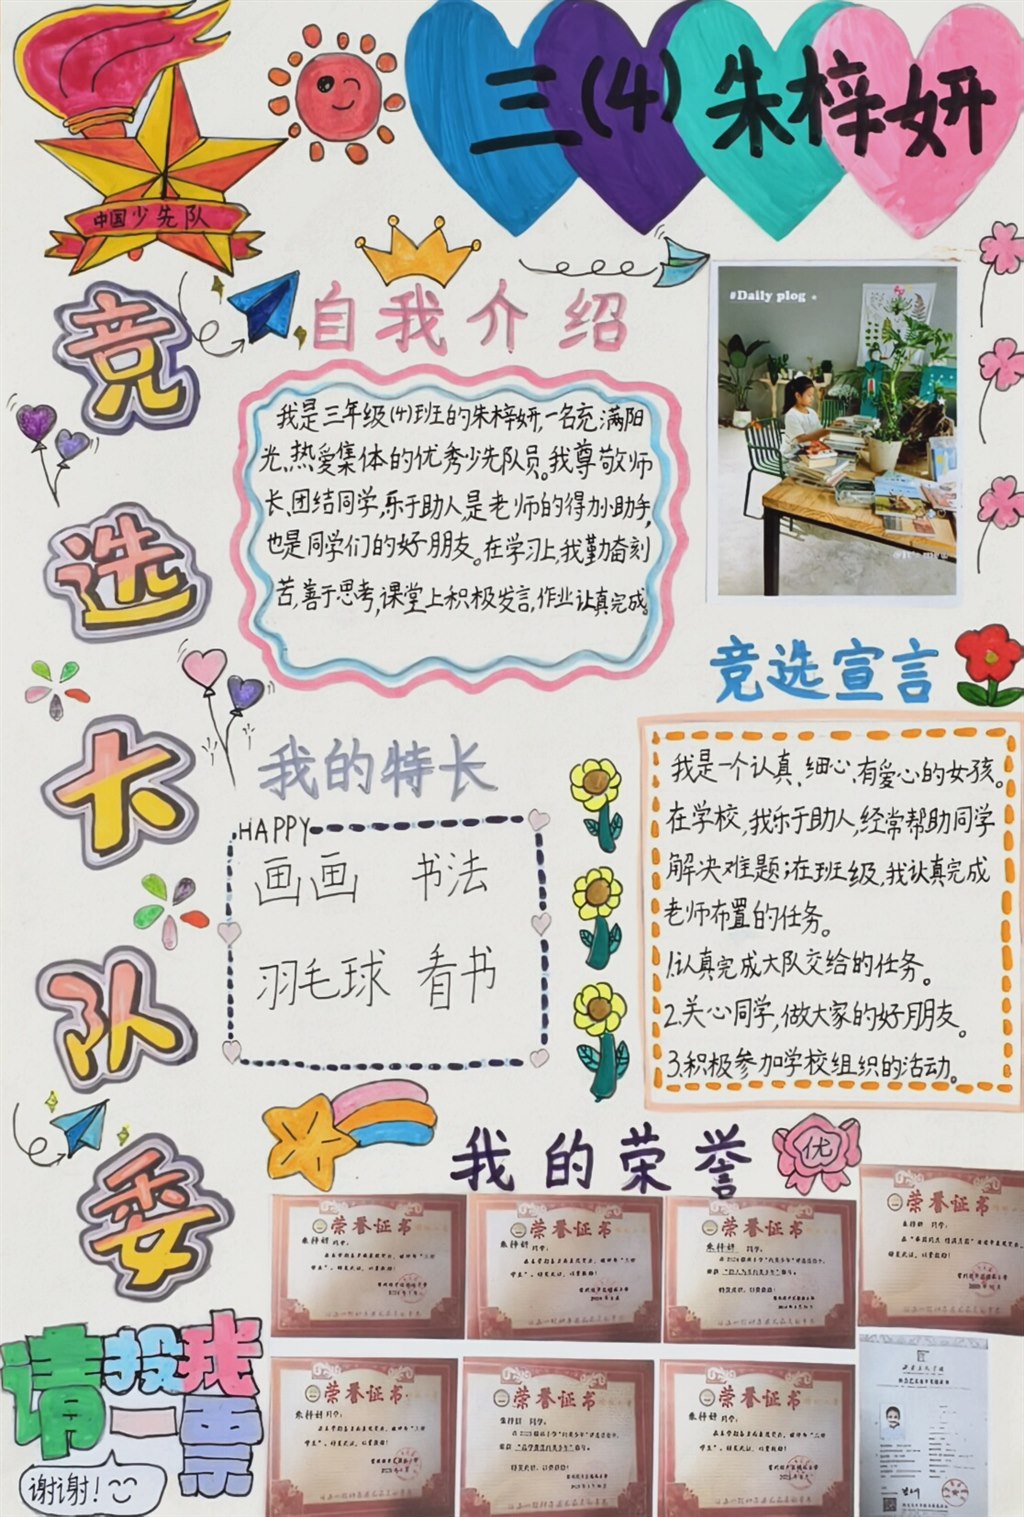 三(4)朱梓妍
中国少先队
竞选大队委
自我介绍
我是三年级(4)班的朱梓妍,一名充满阳
光、热爱集体的优秀少先队员。我尊敬师
长、团结同学,乐于助人,是老师的得力小助手,
也是同学们的好朋友。在学习上,我勤奋刻
苦,善于思考,课堂上积极发言,作业认真完成。
#Daily plog
竞选宣言
我是一个认真、细心、有爱心的女孩。
在学校,我乐于助人,经常帮助同学
解决难题;在班级,我认真完成
老师布置的任务。
1.认真完成大队交给的任务。
2.关心同学,做大家的好朋友。
3.积极参加学校组织的活动。
我的特长
HAPPY
画画 书法
羽毛球 看书
我的荣誉
优
荣誉证书
朱梓妍 同学:
荣誉证书
朱梓妍 同学:
荣誉证书
朱梓妍 同学:
荣誉证书
朱梓妍 同学:
荣誉证书
朱梓妍 同学:
荣誉证书
朱梓妍 同学:
荣誉证书
朱梓妍 同学:
请投我
一票
谢谢!